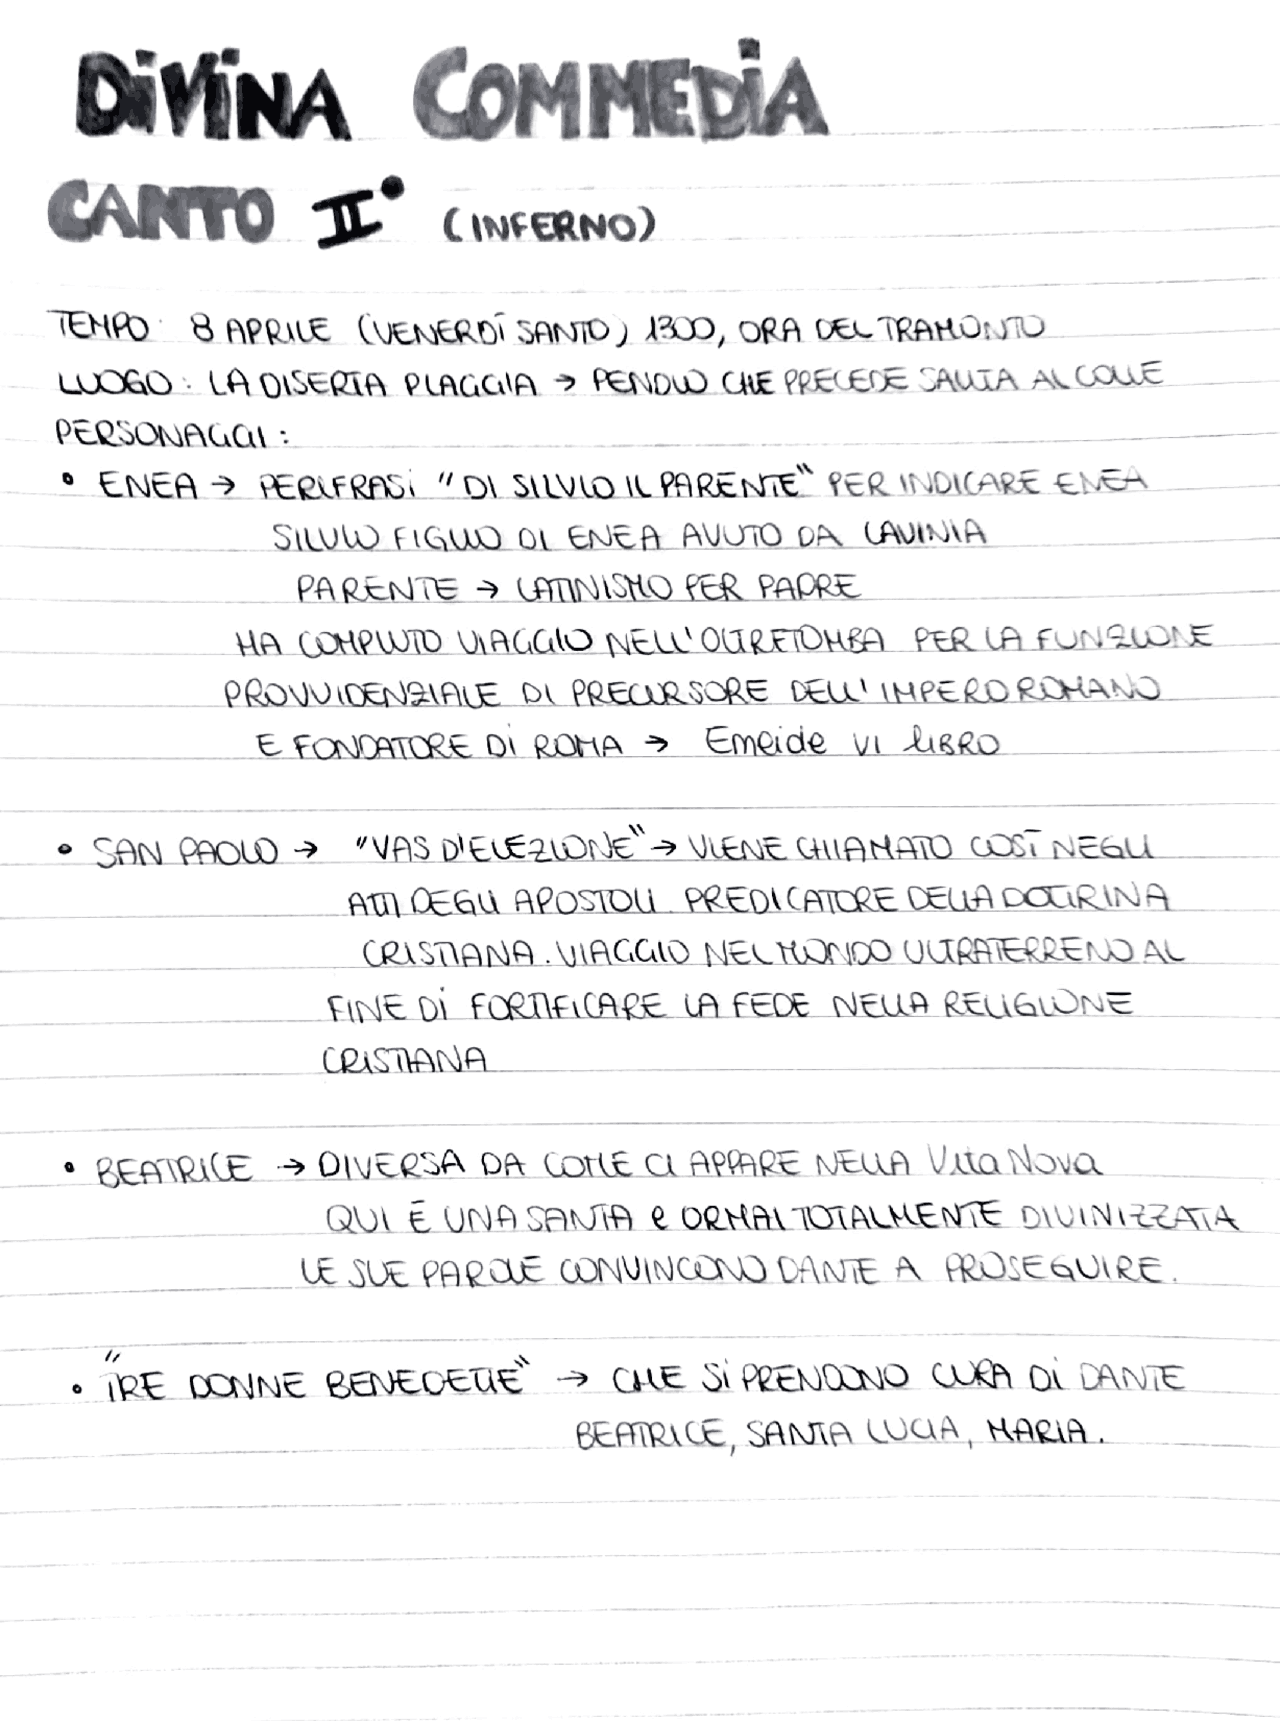 DIVINA COMMEDIA
CANTO II° (INFERNO)
TEMPO: 8 APRILE (VENERDÌ SANTO) 1300, ORA DEL TRAMONTO
LUOGO: LA DISERTA PIAGGIA → PENDIO CHE PRECEDE SALITA AL COLLE
PERSONAGGI:
• ENEA → PERIFRASI "DI SILVIO IL PARENTE" PER INDICARE ENEA
SILVIO FIGLIO DI ENEA AVUTO DA LAVINIA
PARENTE → LATINISMO PER PADRE
HA COMPIUTO VIAGGIO NELL'OLTRETOMBA PER LA FUNZIONE
PROVVIDENZIALE DI PRECURSORE DELL'IMPERO ROMANO
E FONDATORE DI ROMA → Eneide VI LIBRO
• SAN PAOLO → "VAS D'ELEZIONE" → VIENE CHIAMATO COSÌ NEGLI
ATTI DEGLI APOSTOLI. PREDICATORE DELLA DOTTRINA
CRISTIANA. VIAGGIO NEL MONDO ULTRATERRENO AL
FINE DI FORTIFICARE LA FEDE NELLA RELIGIONE
CRISTIANA
• BEATRICE → DIVERSA DA COME CI APPARE NELLA Vita Nova
QUI È UNA SANTA e ORMAI TOTALMENTE DIVINIZZATA
LE SUE PAROLE CONVINCONO DANTE A PROSEGUIRE.
• "TRE DONNE BENEDETTE" → CHE SI PRENDONO CURA DI DANTE
BEATRICE, SANTA LUCIA, MARIA.